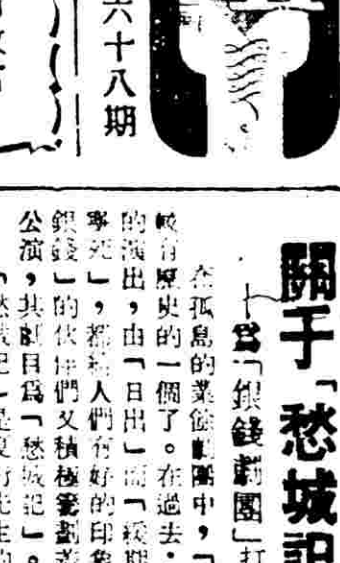 六十八期
關于「愁城記
—爲「銀錢劇團」打
在孤島的業餘劇團中，「
較有歷史的一個了。在過去，
的演出，由「日出」而「緩期
寧死」，都給人們有好的印象
銀錢」的伙伴們又積極籌劃着
公演，其劇目爲「愁城記」。
「愁城記」是夏衍先生的